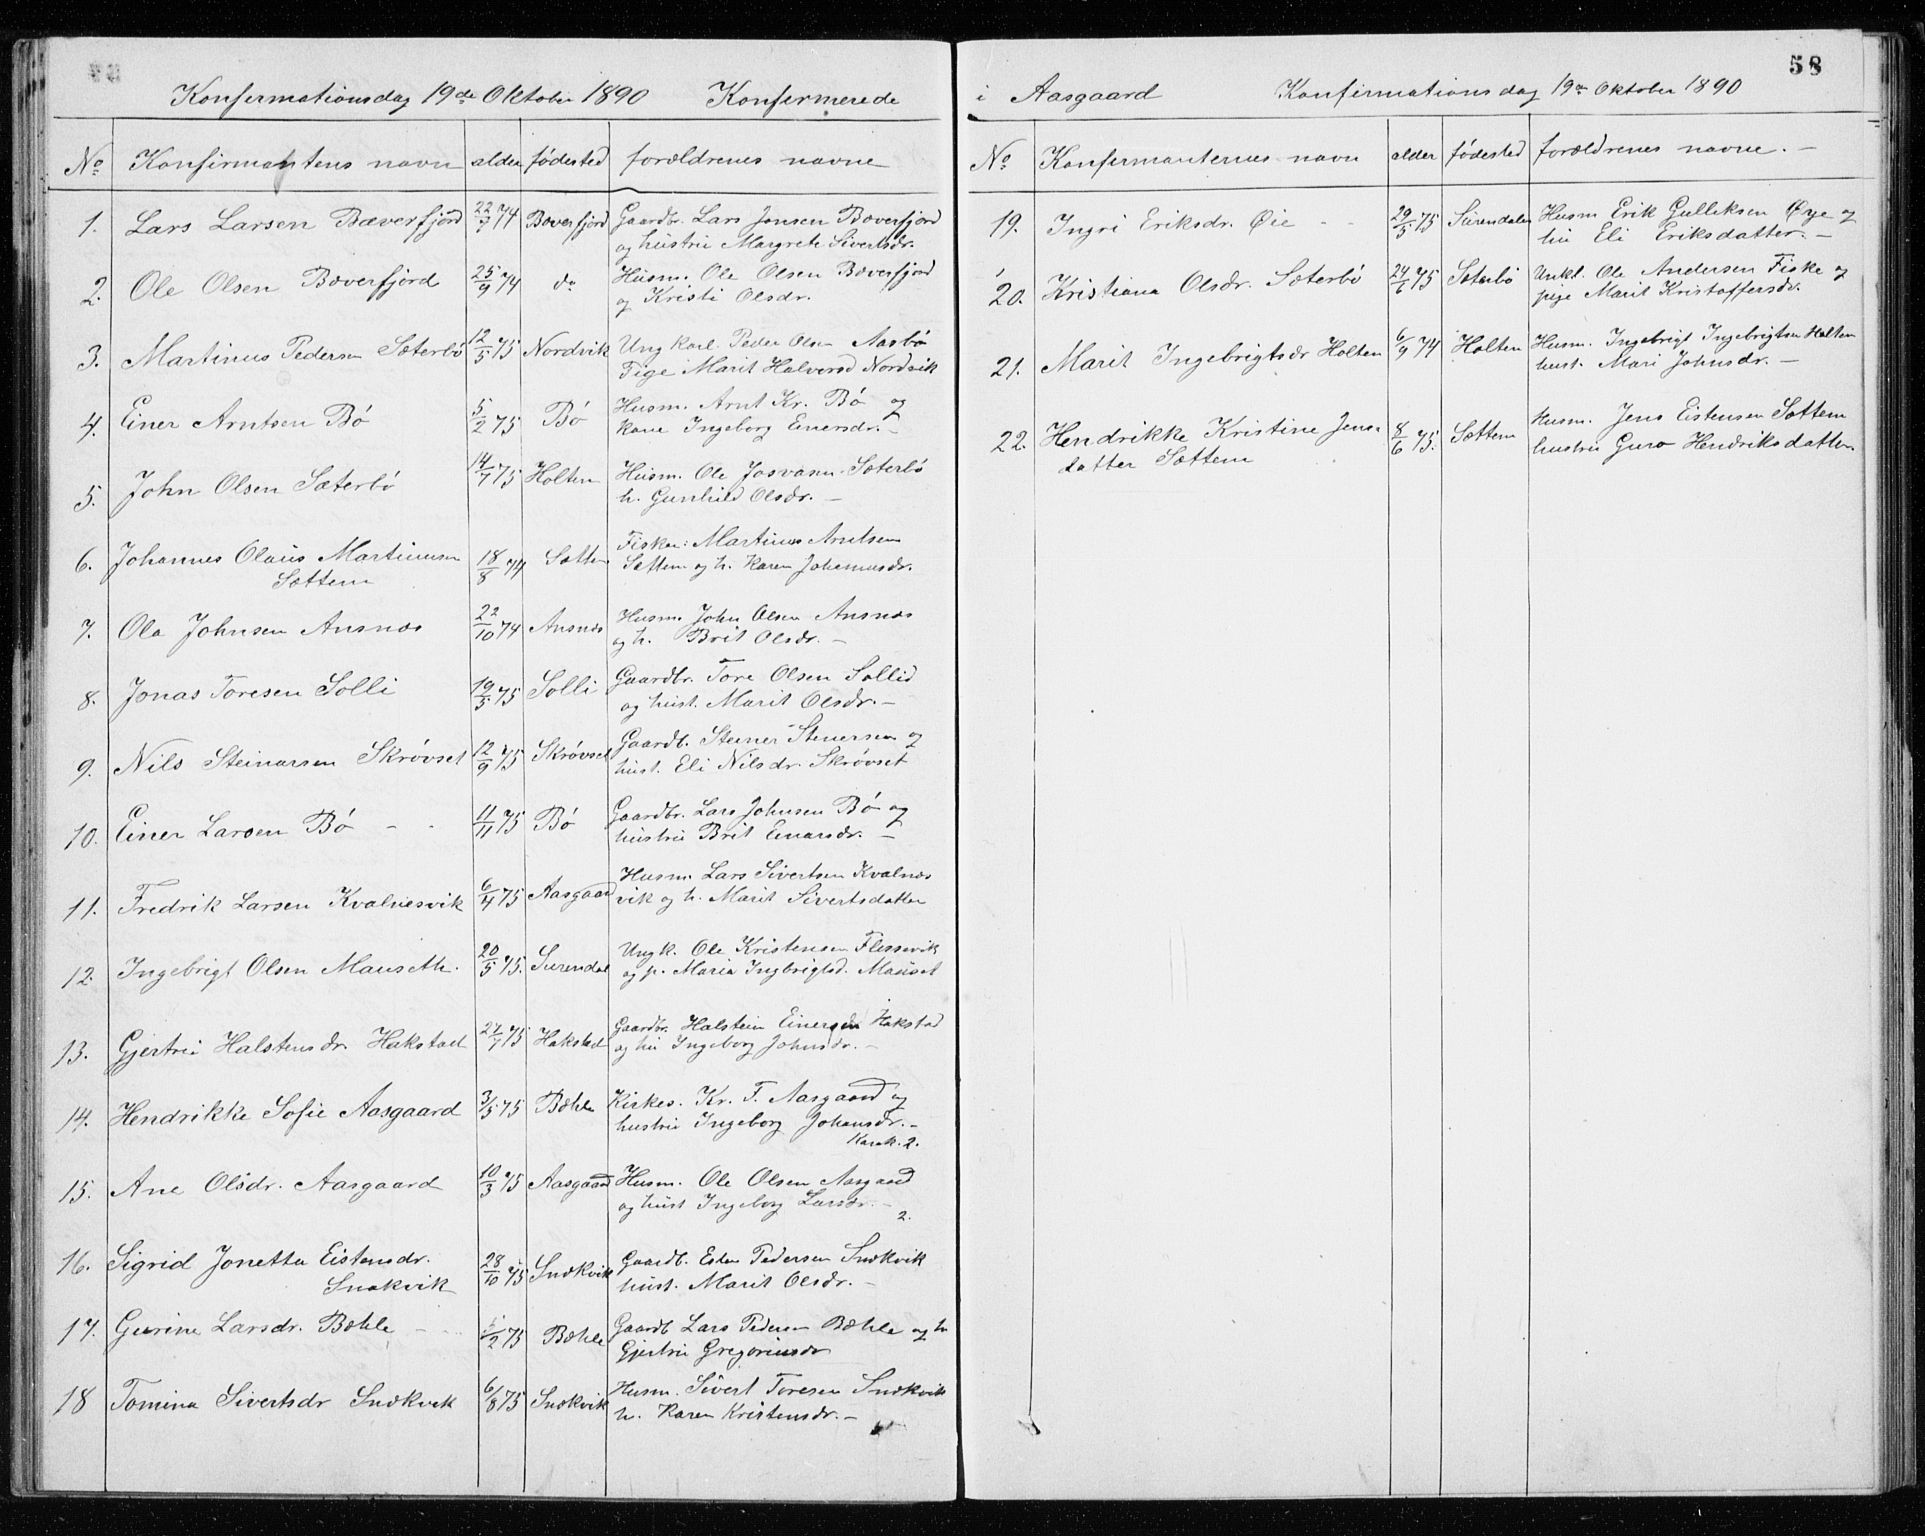 Konfermationsdag 19de Oktober 1890 Konfermerede
No Konfirmantens navn alder fødested forældrenes navne
1. Lars Larsen Bæverfjord 22/7 74 Bæverfjord Gaardbr. Lars Jonsen Bæverfjord
og hustru Margrete Sivertsdr.
2. Ole Olsen Bæverfjord 25/9 74 do Husm. Ole Olsen Bæverfjord
og Kristi Olsdr.
3. Martinus Pedersen Sæterbø 12/5 75 Nordvik Ungkarl Peder Olsen Aasbø
Pige Marit Halversd Nordvik
4. Einer Arntsen Bø 5/2 75 Bø Husm. Arnt Kr. Bø og
kone Ingeborg Einersdr. -
5. John Olsen Sæterbø 14/7 75 Holten Husm. Ole Sæterbø
h. Gunhild Olsdr. -
6. Johannes Olaus Martinusen 18/8 74 Sættem Fisker: Martinus Arntsen
Sættem Sættem og h. Karen Johannusdr.
7. Ola Johnsen Ansnæs 22/10 74 Ansnæs Husm. John Olsen Ansnæs
og h. Brit Olsdr. -
8. Jonas Toresen Solli 19/5 75 Solli Gaardbr. Tore Olsen Sollid
og hust. Marit Olsdr. -
9. Nils Steinarsen Skrøvset 12/9 75 Skrøvset Gaardb. Steiner Steinersen og
hust. Eli Nilsdr. Skrøvset
10. Einer Larsen Bø - - 11/11 75 Bø Gaardbr. Lars Johnsen Bø og
hustru Brit Einarsdr. -
11. Fredrik Larsen Kvalnesvik 6/4 75 Aasgaard Husm. Lars Sivertsen Kvalnæs
vik og h. Marit Sivertsdatter
12. Ingebrigt Olsen Mauseth. 20/5 75. Surendal Ungk. Ole Kristensen Flessevik
og p. Maria Ingbrigtsd. Mauset
13. Gjertru Halstensdr. Hakstad 27/7 75 Hakstad Gaardbr. Halstein Einersen Hakstad
og hu Ingeborg Johnsdr. -
14. Hendrikke Sofie Aasgaard 3/5 75 Bæhle Kirkes. Kr. F. Aasgaard og
hustru Ingeborg Johansdr. -
Karak. 2.
15. Ane Olsdr. Aasgaard 10/3 75 Aasgaard Husm. Ole Olsen Aasgaard
og hust Ingeborg Larsdr. -
2.
16. Sigrid Jonetta Eistensdr. 28/10 75 Snekvik Gaardb. Esten Pedersen Snekvik
Snekvik hust. Marit Olsdr. -
17. Gurine Larsdr. Bæhle - /2 75 Bæhle Gaardb Lars Pedersen Bæhle og h
Gjertru Gregoriusdr
18 Tomina Sivertsdr Snekvik 6/8 75 Snekvik Husm. Sivert Toresen Snekvik
h. Karen Kristensdr. -
58
i Aasgaard Konfirmationsdag 19de Oktober 1890
No Konfermanternes navn alder fødested forældrenes navne. -
19. Ingri Eriksdr. Øie - - 29/5 75 Surendalen Husm Erik Gulliksen Øye og
hu Eli Eriksdatter. -
20. Kristiana Olsdr. Sæterbø 24/6 75 Sæterbø Unkl. Ole Andersen Fiske og
pige Marit Kristoffersdr.
21. Marit Ingebrigtsdr Holten 6/9 74 Holten Husm. Ingebrigt Ingebrigtsen Holten
hust. Mari Johnsdr. -
22. Hendrikke Kristine Jens- 8/6 75. Sættem Husm. Jens Eistensen Sættem
datter Sættem hustru Guro Hendriksdatter